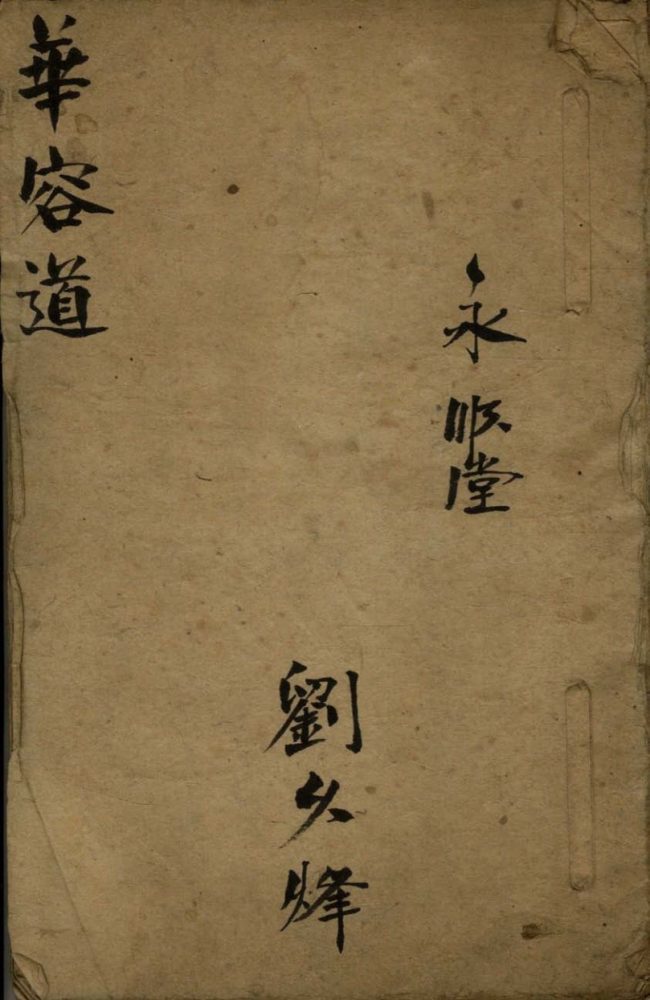 永順堂
劉久烽
華容道